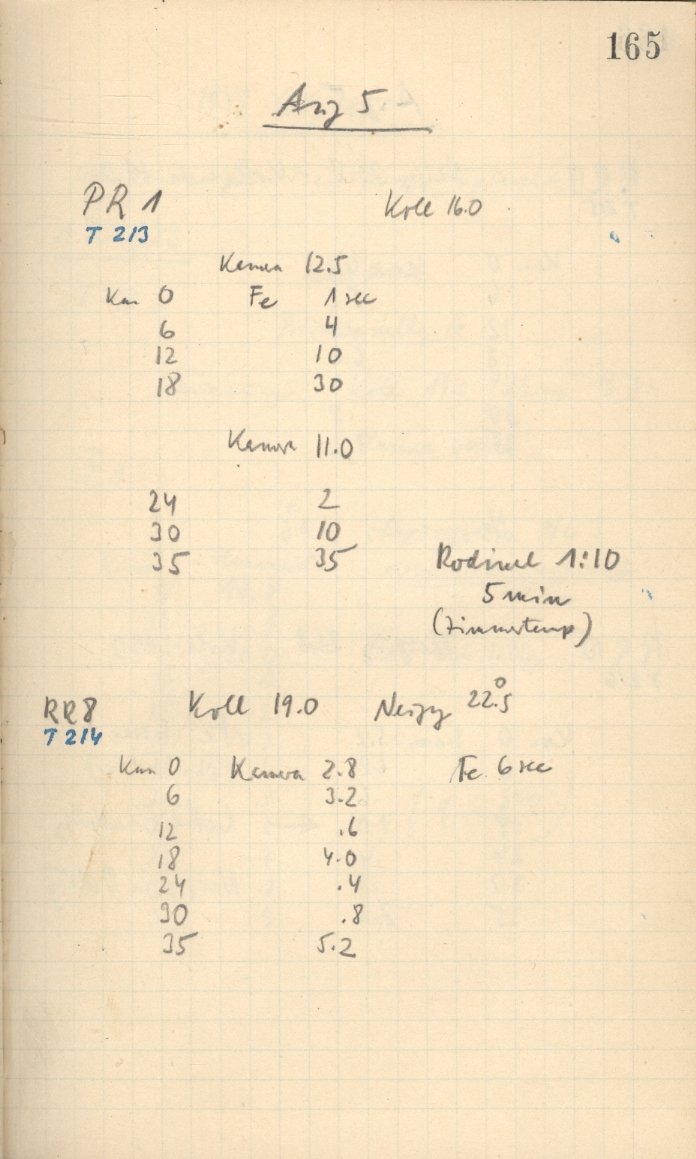 165
Aug 5
PR 1 Koll 16.0
T 213
Kamera 12.5
Km 0 Fe 1 sec
6 4
12 10
18 30
Kamera 11.0
24 2
30 10
35 35 Rodinal 1:10
5 min
(Zimmertemp)
RR8 Koll 19.0 Neigg 22.5°
T 214
Km 0 Kamera 2.8 Fe 6 sec
6 3.2
12 .6
18 4.0
24 .4
30 .8
35 5.2